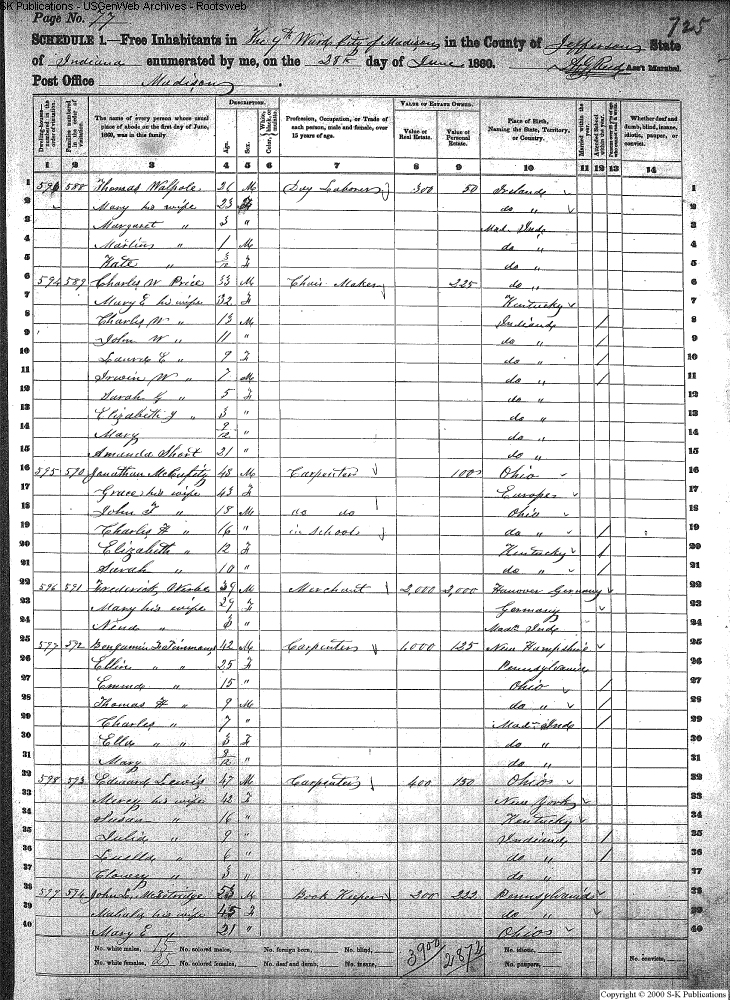 S-K Publications - USGenWeb Archives - Rootsweb
Page No. 77
725
SCHEDULE 1.—Free Inhabitants in The 4th Ward City of Madison in the County of Jefferson State
of Indiana enumerated by me, on the 28th day of June 1860. Ass't Marshal.
Post Office Madison
Dwelling-houses— numbered in the order of visitation.
Families numbered in the order of visitation.
The name of every person whose usual place of abode on the first day of June, 1860, was in this family.
DESCRIPTION.
Age.
Sex.
Color, White, black, or mulatto.
Profession, Occupation, or Trade of each person, male and female, over 15 years of age.
VALUE OF ESTATE OWNED.
Value of Real Estate.
Value of Personal Estate.
Place of Birth, Naming the State, Territory, or Country.
Married within the year.
Attended School within the year.
Whether deaf and dumb, blind, insane, idiotic, pauper, or convict.
1 2 3 4 5 6 7 8 9 10 11 12 13 14
1 593 588 Thomas Walpole 26 M Day Laborer 300 50 Ireland 1
2 Mary his wife 23 F do " 2
3 Margaret " 3 " Mad. Ind. 3
4 Martin " 1 M do " 4
5 Kate " 3/12 F do " 5
6 594 589 Charles W Price 33 M Chair Maker 225 do " 6
7 Mary E his wife 32 F Kentucky 7
8 Charles W " 13 M Indiana / 8
9 John W " 11 " do " / 9
10 Laura E " 9 F do " / 10
11 Irwin W " 7 M do " / 11
12 Sarah " 5 F do " 12
13 Elizabeth J " 3 " do " 13
14 Mary 9/12 " do " 14
15 Amanda Short 21 " do " 15
16 595 590 Jonathan 48 M Carpenter 100 Ohio 16
17 Grace his wife 43 F Europe 17
18 John F " 18 M do do Ohio 18
19 Charles H " 16 " in School do " / 19
20 Elizabeth " 12 F Kentucky / 20
21 Sarah " 10 " do " / 21
22 596 591 Frederick 39 M Merchant 2,000 2,000 Hanover Germany 22
23 Mary his wife 27 F Germany 23
24 " " Mad. Ind 24
25 597 592 Benjamin F 42 M Carpenter 1,000 125 New Hampshire 25
26 Ellen " " 25 F Pennsylvania 26
27 " 15 " Ohio / 27
28 Thomas H " 9 M do " / 28
29 Charles " 7 " Mad. Ind / 29
30 Ella " " 3 F do " 30
31 Mary 9/12 " do " 31
32 598 593 Edward Lewis 47 M Carpenter 400 150 Ohio 32
33 Mercy his wife 42 F New York 33
34 Susan " 16 " Kentucky 34
35 Julia " 9 " Indiana / 35
36 Luella " 6 " do " / 36
37 " 3 " do " 37
38 599 594 John L 53 M Book Keeper 200 222 Pennsylvania 38
39 his wife 45 F do " 39
40 Mary E " 21 " Ohio 40
No. white males, 15 No. colored males, No. foreign born, No. blind, 3900 2872 No. idiotic,
No. white females, 25 No. colored females, No. deaf and dumb, No. insane, No. paupers, No. convicts,
Copyright © 2000 S-K Publications